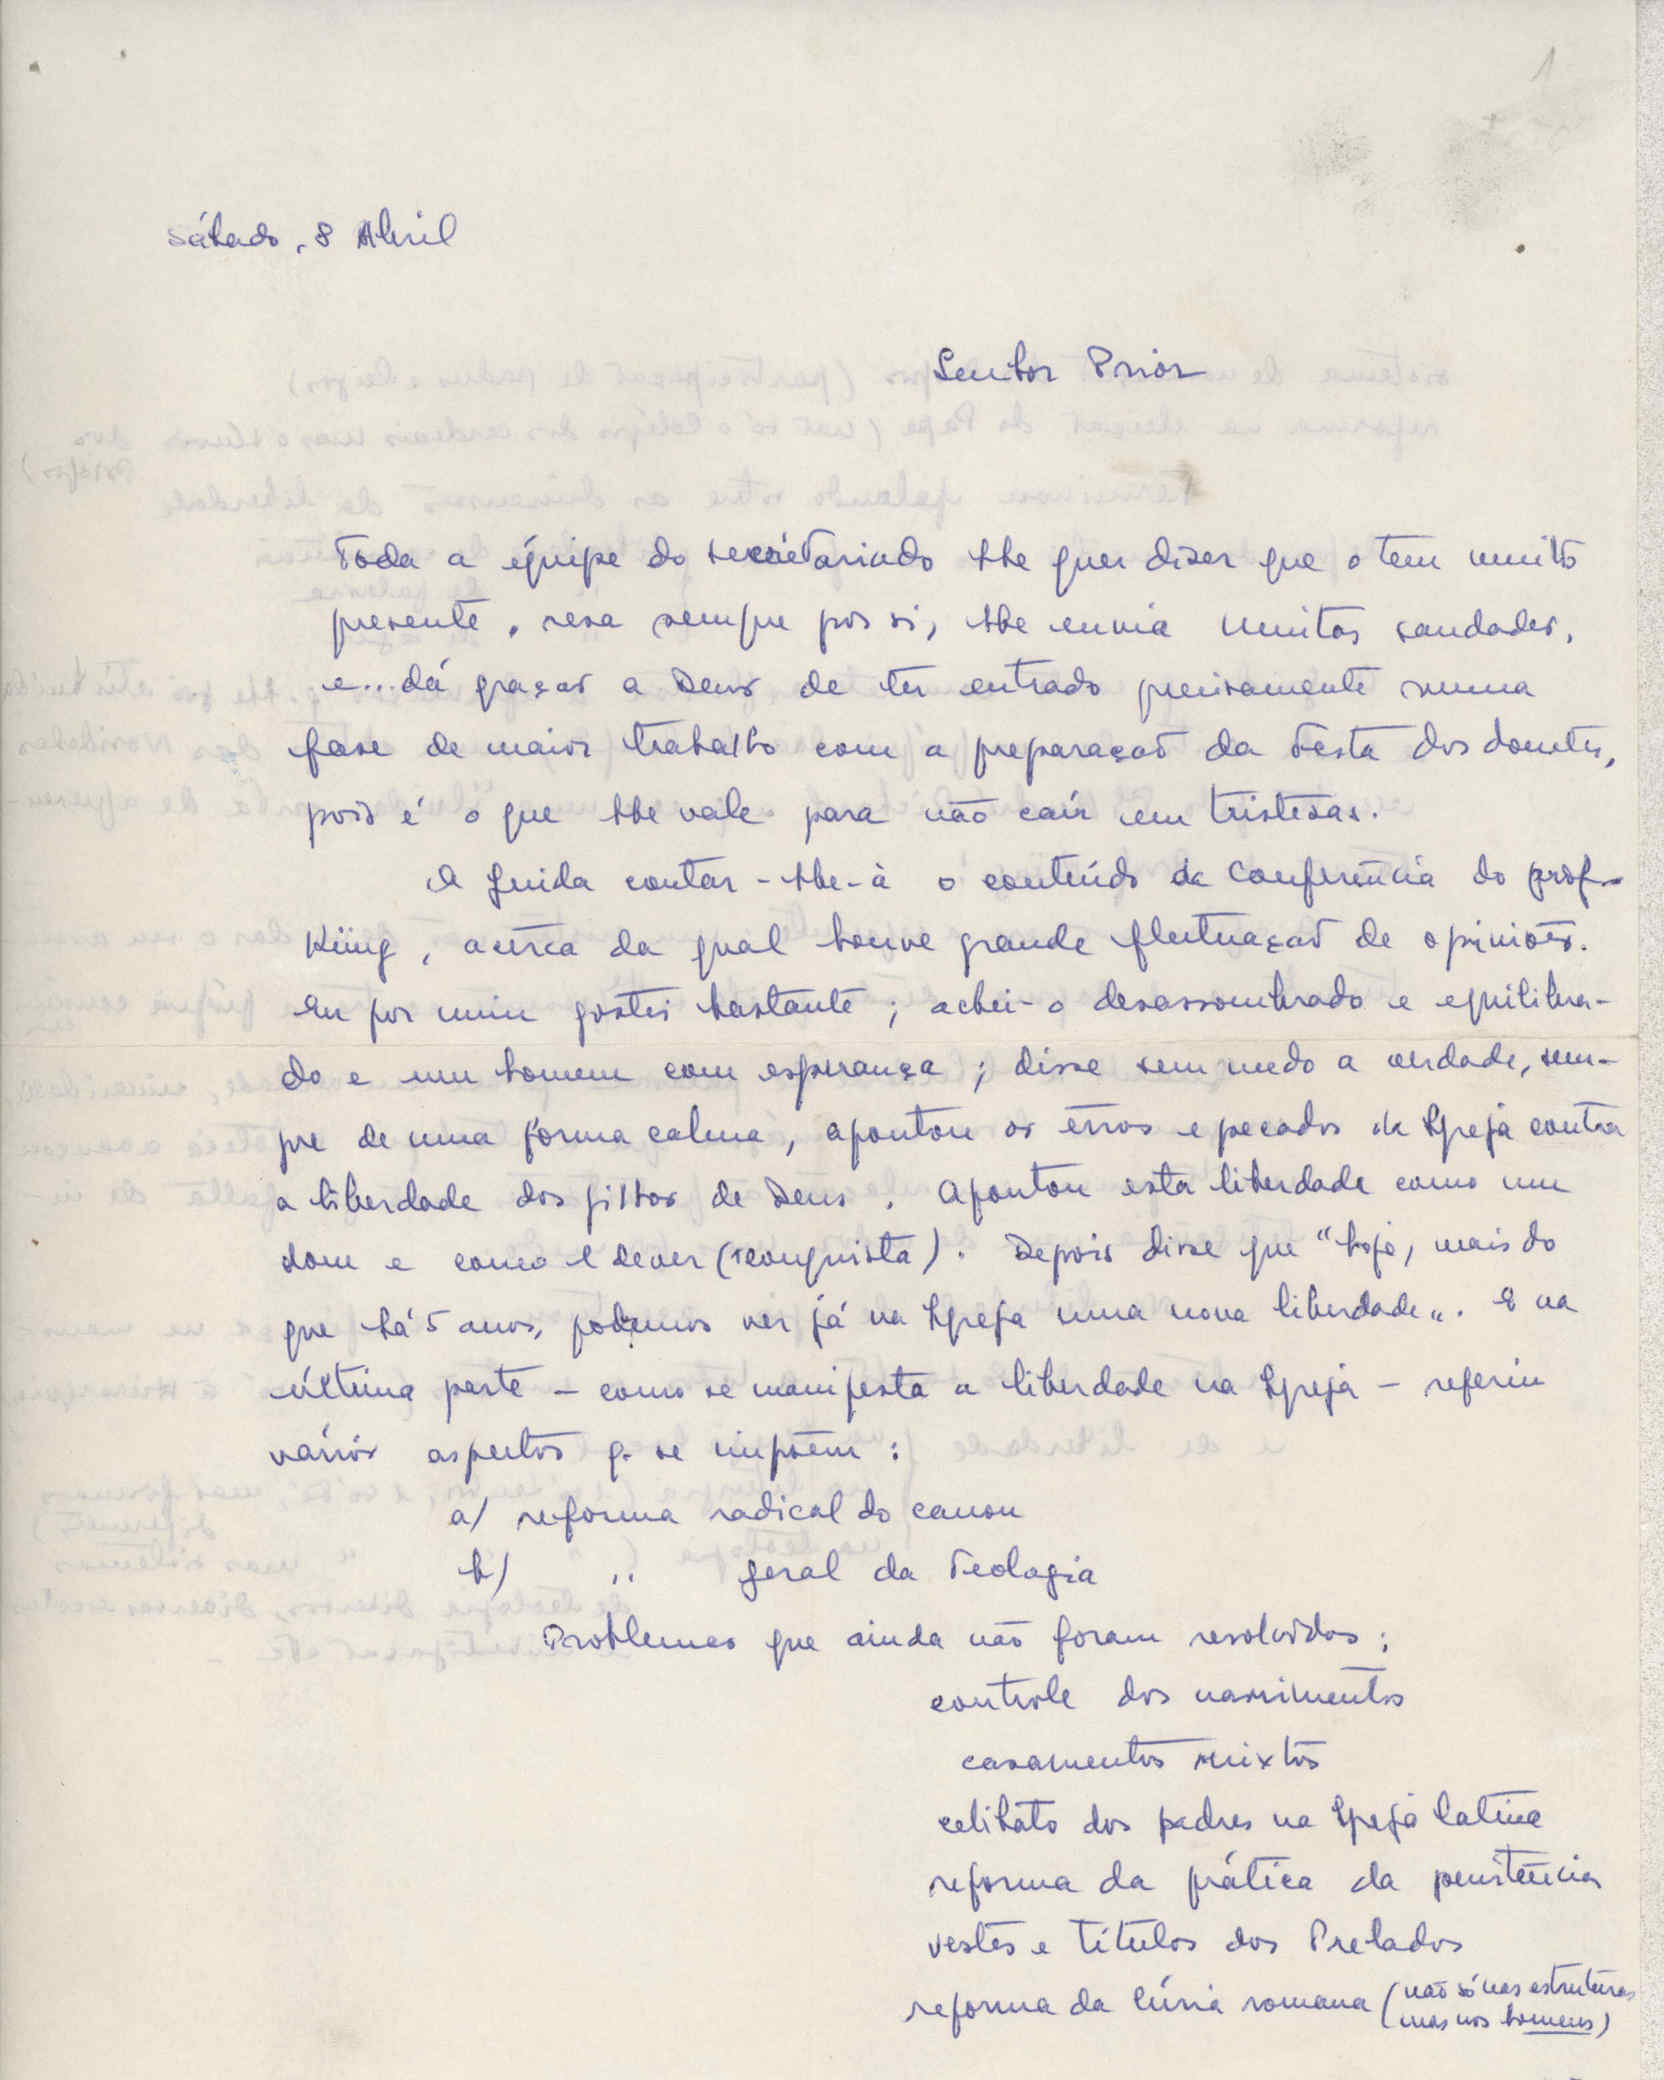 1
Sábado, 8 Abril
Senhor Prior
Toda a équipe do secretariado lhe quer dizer que o tem muito
presente, reza sempre por si, lhe envia muitas saudades,
e... dá graças a Deus de ter entrado precisamente numa
fase de maior trabalho com a preparação da Festa dos doentes,
pois é o que lhe vale para não caír em tristezas.
A Guida contar-lhe-à o conteúdo da Conferência do prof.
Küng, acêrca da qual houve grande flutuação de opiniões.
Eu por mim gostei bastante; achei-o desassombrado e equilibra-
do e um homem com esperança; disse sem medo a verdade, sem-
pre de uma forma calma, apontou os êrros e pecados da Igreja contra
a liberdade dos filhos de Deus. Apontou esta liberdade como um
dom e como dever (reconquista). Depois disse que "hoje, mais do
que há 5 anos, podemos ver já na Igreja uma nova liberdade". E na
última parte - como se manifesta a liberdade na Igreja - referiu
vários aspectos q. se impõem:
a) reforma radical do canon
b) " geral da Teologia
Problemas que ainda não foram resolvidos:
controle dos nascimentos
casamentos mixtos
celibato dos padres na Igreja latina
reforma da prática da penitência
vestes e títulos dos Prelados
reforma da Cúria romana (não só nas estruturas
mas nos homens)